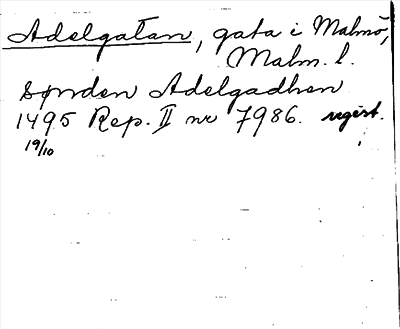 Adelgatan, gata i Malmö,
Malm. l.
synden Adelgadhen
1495 Rep. II nr 7986. regist.
19/10